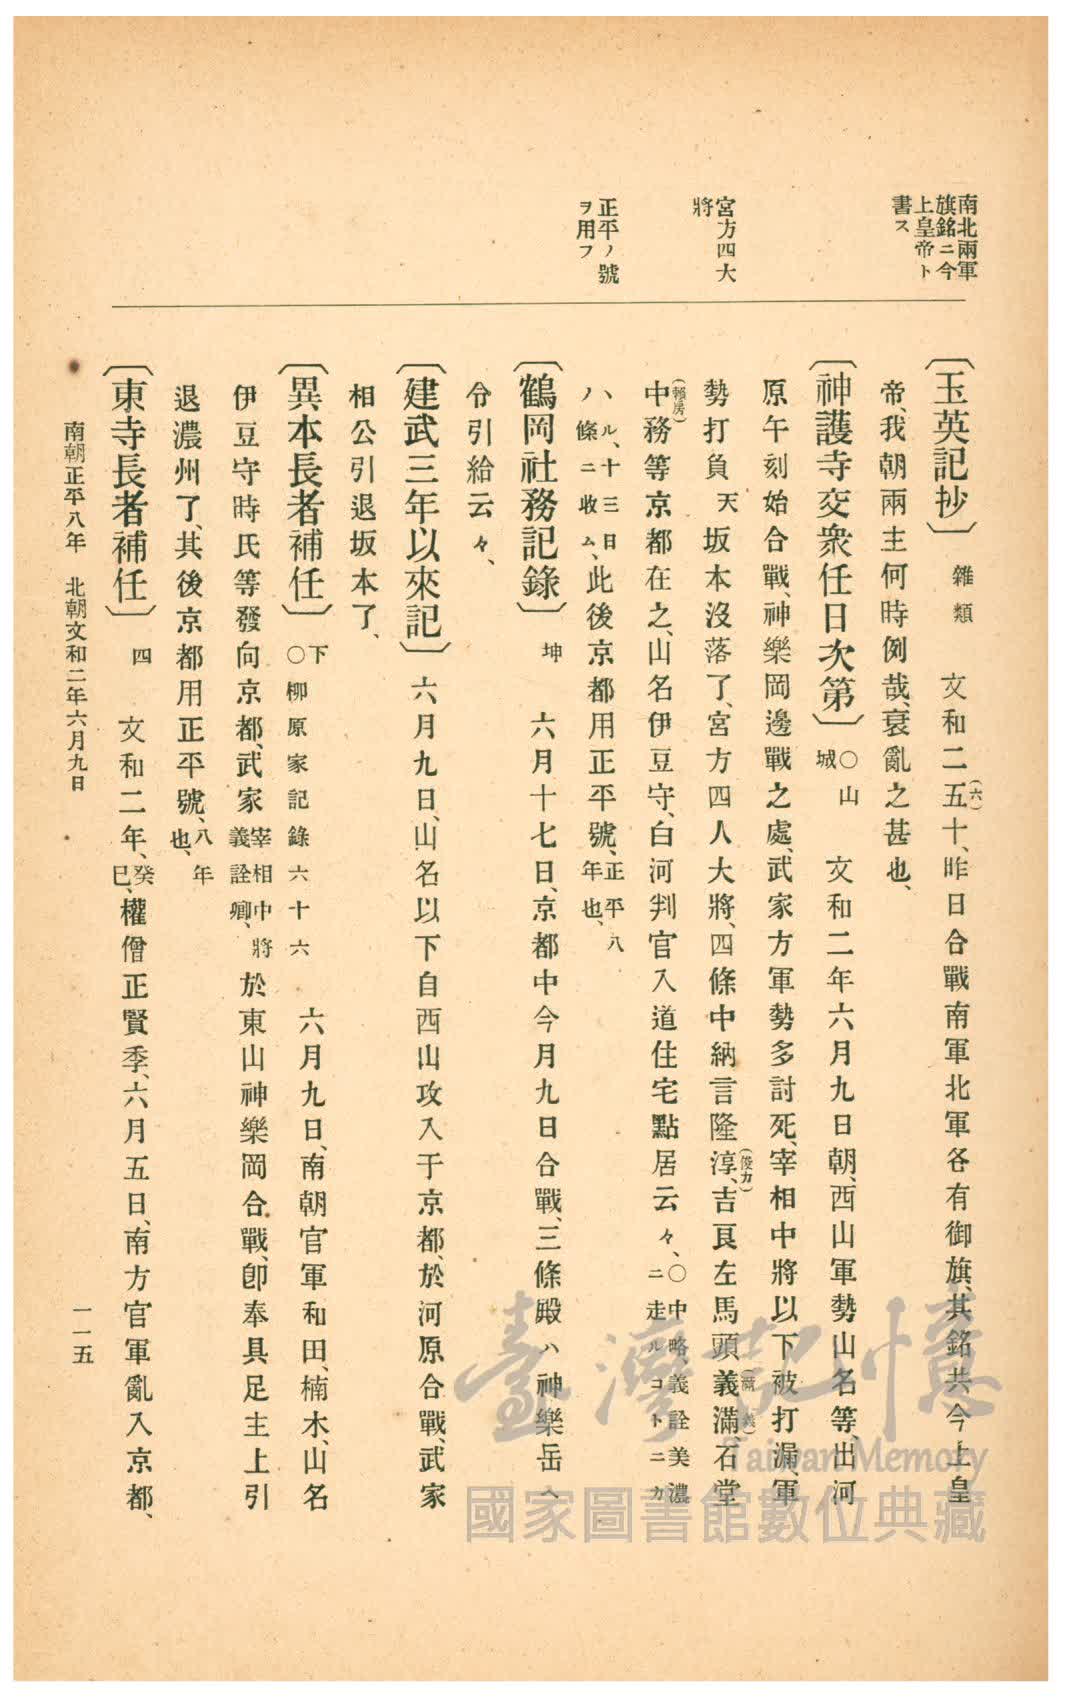 南北兩軍
旗銘ニ今
上皇帝ト
書ス
宮方四大
將
正平ノ號
ヲ用フ
〔玉英記抄〕 雜類 文和二五(六)十、昨日合戰南軍北軍各有御旗、其銘共今上皇
帝、我朝兩主何時例哉、衰亂之甚也、
〔神護寺交衆任日次第〕 ○山城 文和二年六月九日朝、西山軍勢山名等、出河
原午刻始合戰、神樂岡邊戰之處、武家方軍勢多討死、宰相中將以下被打漏、軍
勢打負天坂本沒落了、宮方四人大將、四條中納言隆淳(俊カ)、吉良左馬頭義滿(滿義)石堂
中務(賴房)等京都在之、山名伊豆守、白河判官入道住宅點居云々、○中略、義詮美濃ニ走ルコトニカ
ヽル、十三日ノ條ニ收ム、此後京都用正平號、正平八年也、
〔鶴岡社務記錄〕 坤 六月十七日、京都中今月九日合戰、三條殿ハ神樂岳ヘ
令引給云々、
〔建武三年以來記〕 六月九日、山名以下自西山攻入于京都、於河原合戰、武家
相公引退坂本了、
〔異本長者補任〕 下○柳原家記錄六十六 六月九日、南朝官軍和田、楠木、山名
伊豆守時氏等發向京都、武家宰相中將義詮卿、於東山神樂岡合戰、卽奉具足主上引
退濃州了、其後京都用正平號、八年也、
〔東寺長者補任〕 四 文和二年、癸巳、權僧正賢季、六月五日、南方官軍亂入京都、
南朝正平八年 北朝文和二年六月九日
一一五
臺灣記憶
Taiwan Memory
國家圖書館數位典藏